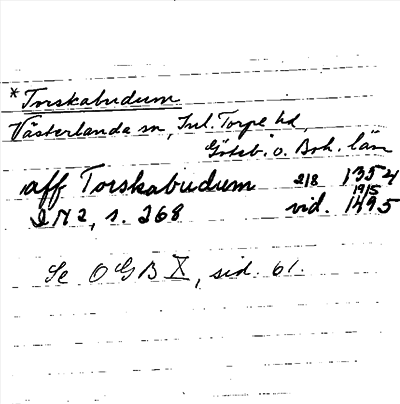 *Torskabudum
Västerlanda sn, Inl. Torpe hd,
Göteb. o. Boh. län
aff Torskabudum 2/8 1354
DN 2, s. 268 vid. 19/5 1495
Se OGB X, sid. 61.